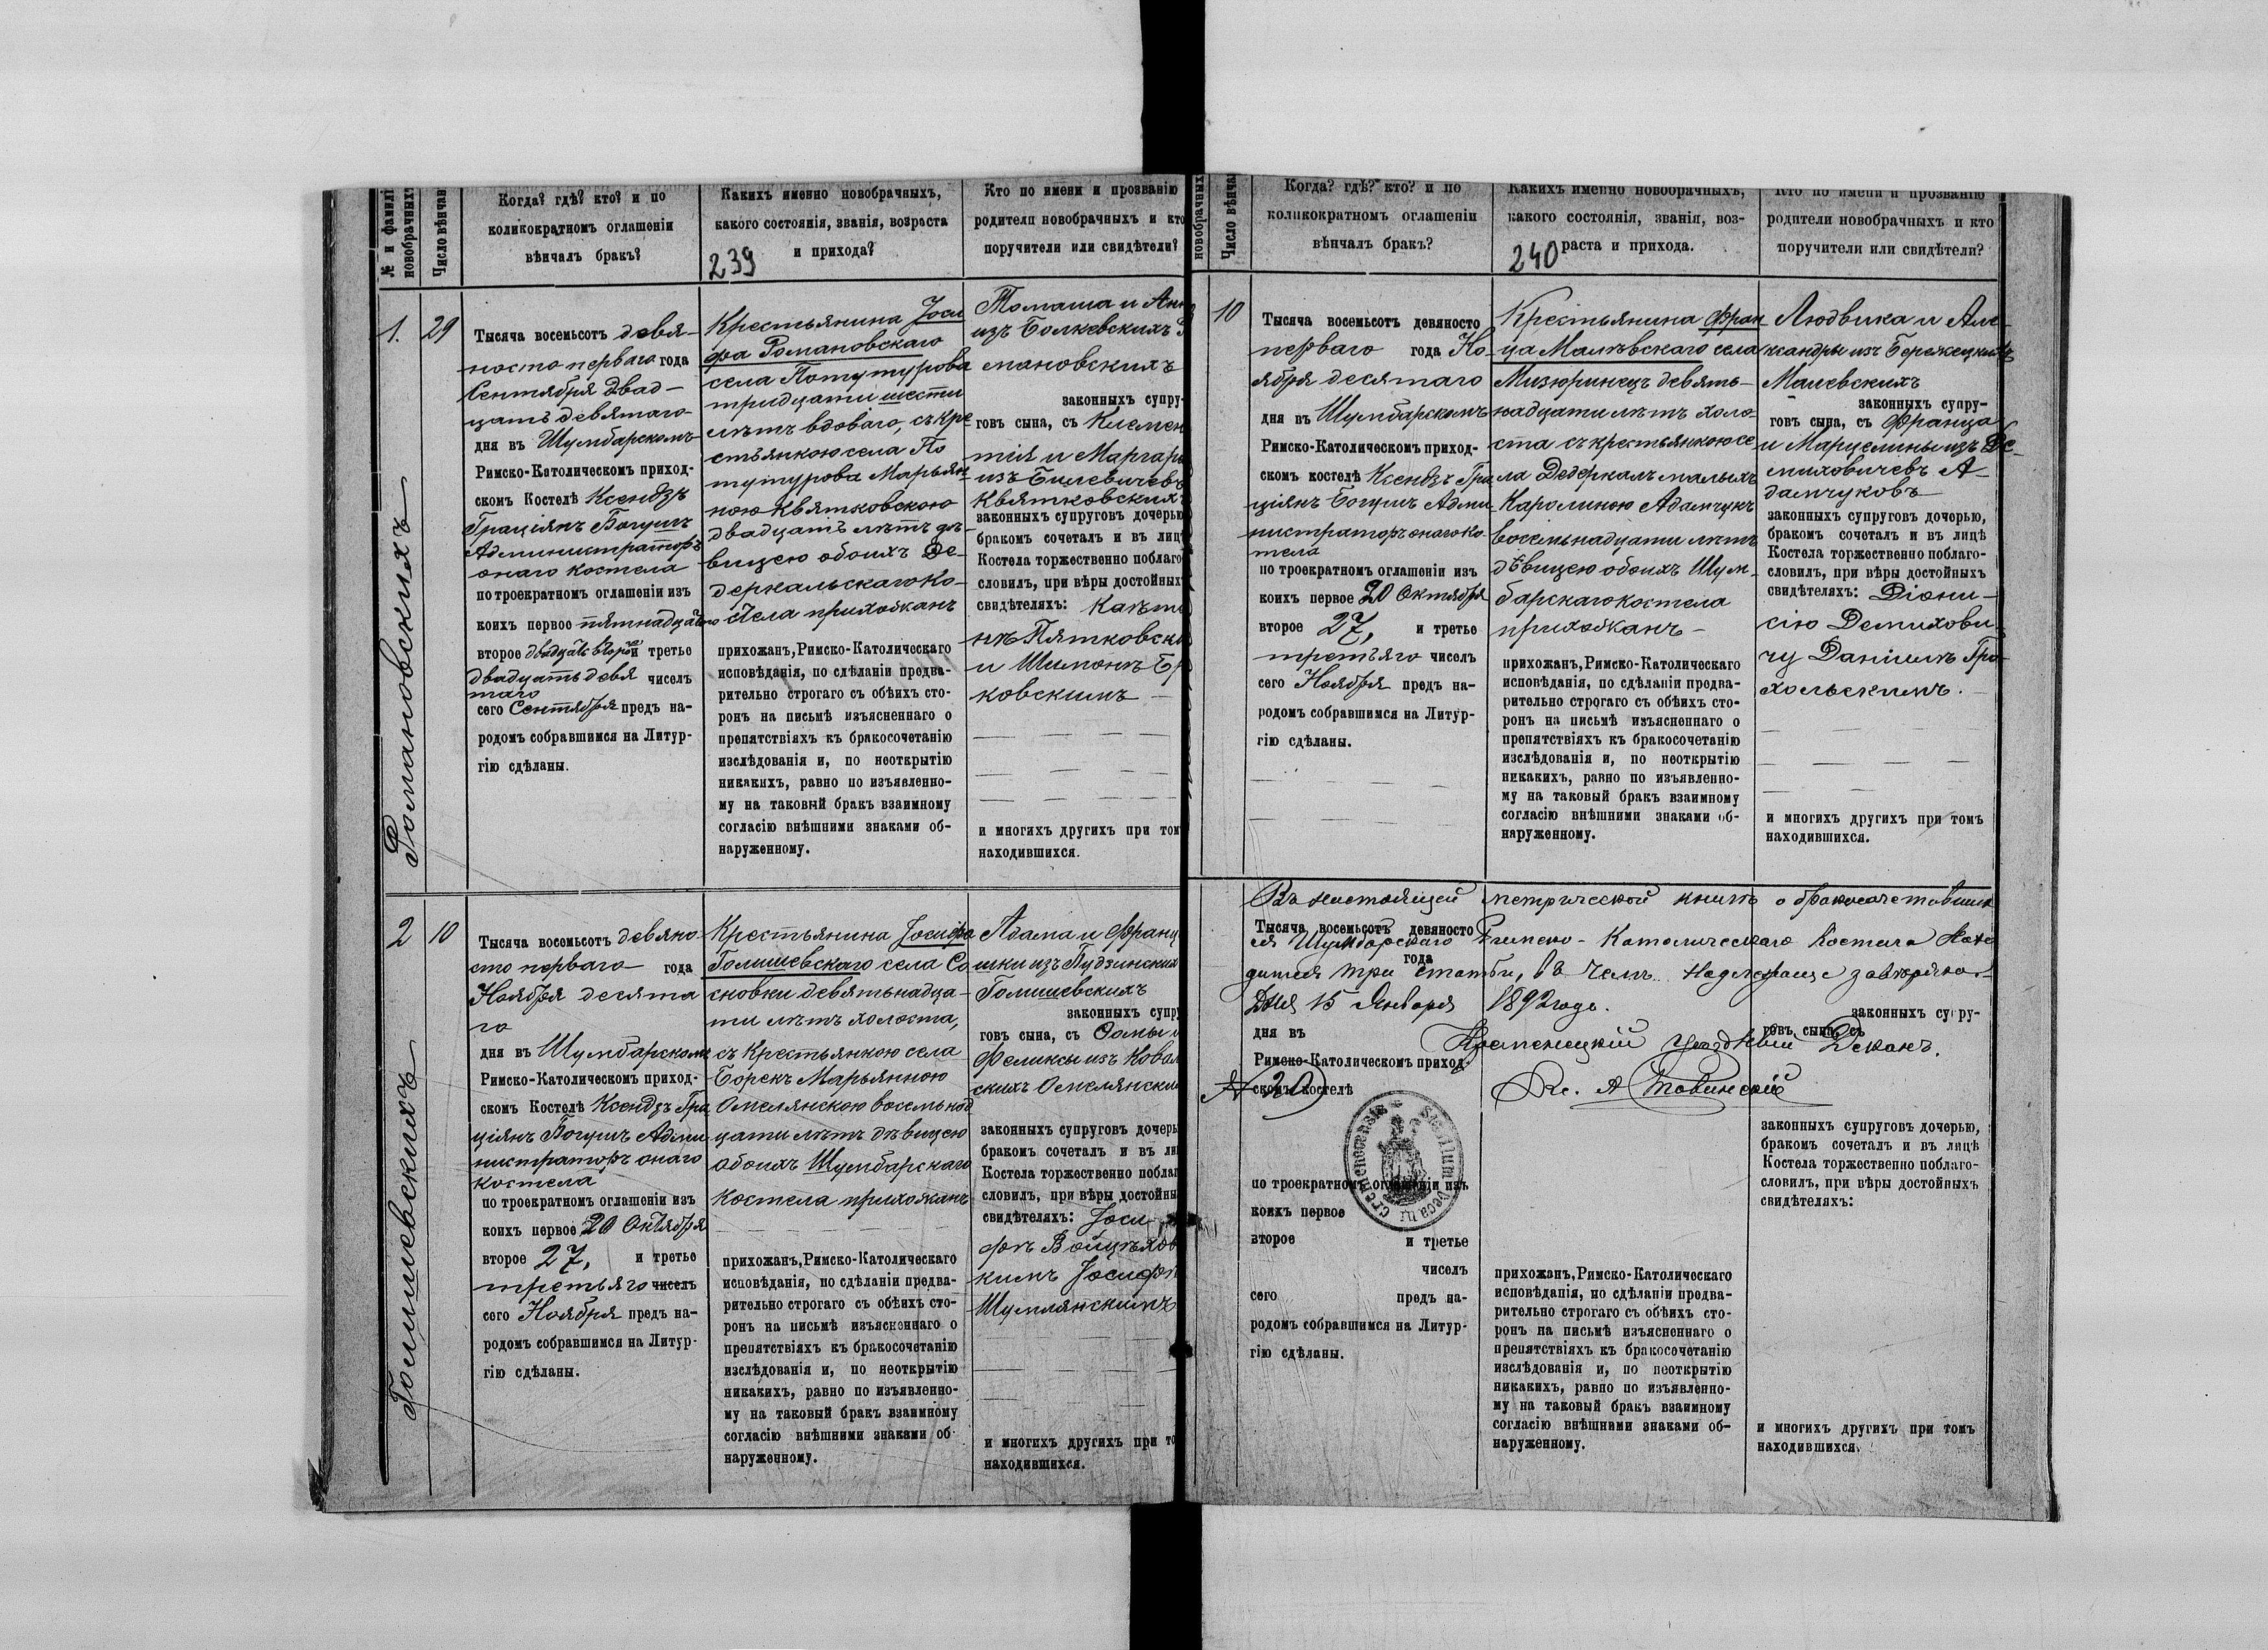 № и фамилі
новобрачных
Число вѣнчан
Когда? гдѣ? кто? и по
коликократномъ оглашеніи
вѣнчалъ бракъ?
Какихъ именно новобрачныхъ,
какого состоянія, званія, возраста
и прихода?
239
Кто по имени и прозванію
родители новобрачныхъ и кто
поручители или свидѣтели?
1.
Романовскихъ
29
Тысяча восемьсотъ девя-
носто перваго года
Сентября двад-
цать девятаго
дня въ Шумбарскомъ
Римско-Католическомъ приход-
скомъ Костелѣ Ксендзъ
Граціянъ Богушъ
Администраторъ
онаго костела
по троекратномъ оглашеніи изъ
коихъ первое пятнадцатаго
второе двадцать второй третье
двадцать девя чиселъ
таго
сего Сентября предъ на-
родомъ собравшимся на Литур-
гію сдѣланы.
Крестьянина Іоси
фа Романовскаго
села Потутурова
тридцати шести
лѣтъ вдоваго, съ кре
стьянкою села По
тутурова Марьян-
ною Квятковскою
двадцать лѣтъ дѣ-
вицею обоихъ Де-
деркальскаго Ко-
стела прихожанъ
прихожанъ, Римско-Католическаго
исповѣданія, по сдѣланіи предва-
рительно строгаго съ обѣихъ сто-
ронъ на письмѣ изъясненнаго о
препятствіяхъ къ бракосочетанію
изслѣдованія и, по неоткрытію
никакихъ, равно по изъявленно-
му на таковый бракъ взаимному
согласію внѣшними знаками об-
наруженному.
Томаша и Анн
изъ Болкевскихъ Р
мановскихъ
законныхъ супру-
говъ сына, съ Клемен
тія и Маргари
изъ Билевичевъ
Квятковскихъ
законныхъ супруговъ дочерью
бракомъ сочеталъ и въ лиц
Костела торжественно поблаго
словилъ, при вѣры достойных
свидѣтеляхъ: Каэта
нѣ Пятковски
и Шимонѣ Бр
ковскимъ
и многихъ другихъ при том
находившихся.
2
Голишевскихъ
10
Тысяча восемьсотъ девяно-
сто перваго года
Ноября десята
го
дня въ Шумбарскомъ
Римско-Католическомъ приход-
скомъ Костелѣ Ксендзъ Гра
ціянъ Богушъ Адми
нистраторъ онаго
костела
по троекратномъ оглашеніи изъ
коихъ первое 20 Октября
второе 27, и третье
третьяго чиселъ
сего Ноября предъ на-
родомъ собравшимся на Литур-
гію сдѣланы.
Крестьянина Іосифа
Голишевскаго села Со
сновки девятьнадца-
ти лѣтъ холоста,
съ Крестьянкою села
Борекъ Марьянною
Омелянскою восемьнад
цати лѣтъ дѣвицею
обоихъ Шумбарскаго
Костела прихожанъ
прихожанъ, Римско-Католическаго
исповѣданія, по сдѣланіи предва-
рительно строгаго съ обѣихъ сто-
ронъ на письмѣ изъясненнаго о
препятствіяхъ къ бракосочетанію
изслѣдованія и, по неоткрытію
никакихъ, равно по изъявленно-
му на таковый бракъ взаимному
согласію внѣшними знаками об-
наруженному.
Адама и Франц
ишки изъ Пудзинских
Голишевскихъ
законныхъ супру
говъ сына, съ Ѳомы и
Феликсы изъ Ковал
скихъ Омелянских
законныхъ супруговъ дочерь
бракомъ сочеталъ и въ ли
Костела торжественно поблаг
словилъ, при вѣры достойны
свидѣтеляхъ: Іоси
фѣ Войцѣхов
кимъ Іосифѣ
Шумлянскимъ
и многихъ другихъ при то
находившихся.
новобрачных
Число вѣнча
Когда? гдѣ? кто? и по
коликократномъ оглашеніи
вѣнчалъ бракъ?
Какихъ именно новобрачныхъ,
какого состоянія, званія, воз-
раста и прихода.
240
Кто по имени и прозванію
родители новобрачныхъ и кто
поручители или свидѣтели?
10
Тысяча восемьсотъ девяносто
перваго года Но-
ября десятаго
дня въ Шумбарскомъ
Римско-Католическомъ приход-
скомъ костелѣ Ксендзъ Гра
ціянъ Богушъ Адми-
нистраторъ онаго Ко-
стела
по троекратномъ оглашеніи изъ
коихъ первое 20 Октября
второе 27, и третье
третьяго чиселъ
сего Ноября предъ на-
родомъ собравшимся на Литур-
гію сдѣланы.
Крестьянина Фран-
ца Малѣвскаго села
Мизюринецъ девять-
надцати лѣтъ холо-
ста съ крестьянкою се
ла Дедеркалъ малыхъ
Каролиною Адамчукъ
восемьнадцати лѣтъ
дѣвицею обоихъ Шум-
барскаго костела
прихожанъ
прихожанъ, Римско-Католическаго
исповѣданія, по сдѣланіи предва-
рительно строгаго съ обѣихъ сто-
ронъ на письмѣ изъясненнаго о
препятствіяхъ къ бракосочетанію
изслѣдованія и, по неоткрытію
никакихъ, равно по изъявленно-
му на таковый бракъ взаимному
согласію внѣшними знаками об-
наруженному.
Людвика и Але-
ксандры изъ Бережецкихъ
Малевскихъ
законныхъ супру-
говъ сына, съ Франца
и Марцелины изъ Де-
миховичевъ А-
дамчуковъ
законныхъ супруговъ дочерью,
бракомъ сочеталъ и въ лицѣ
Костела торжественно поблаго-
словилъ, при вѣры достойныхъ
свидѣтеляхъ: Діони-
сію Демихови-
чу Даніилѣ Гро-
хольскимъ.
и многихъ другихъ при томъ
находившихся.
Въ настоящей метрической книгѣ о бракосочетавших
Тысяча восемьсотъ девяносто
ся Шумбарскаго Римско-Католическаго Костела Нахо
года
дится три статьи, въ чемъ надлежаще завѣряю.
Дня 15 Января 1892 года.
законныхъ супру-
дня въ
говъ сына, съ
Кременецкій уѣздный Деканъ.
Римско-Католическомъ приход-
скомъ костелѣ
№ 20
Кс. А Товинскій
Sigillum Decani Cremenecensis
по троекратномъ оглашеніи изъ
коихъ первое
второе и третье
чиселъ
сего предъ на-
родомъ собравшимся на Литур-
гію сдѣланы.
прихожанъ, Римско-Католическаго
исповѣданія, по сдѣланіи предва-
рительно строгаго съ обѣихъ сто-
ронъ на письмѣ изъясненнаго о
препятствіяхъ къ бракосочетанію
изслѣдованія и, по неоткрытію
никакихъ, равно по изъявленно-
му на таковый бракъ взаимному
согласію внѣшними знаками об-
наруженному.
законныхъ супруговъ дочерью,
бракомъ сочеталъ и въ лицѣ
Костела торжественно поблаго-
словилъ, при вѣры достойныхъ
свидѣтеляхъ:
и многихъ другихъ при томъ
находившихся.